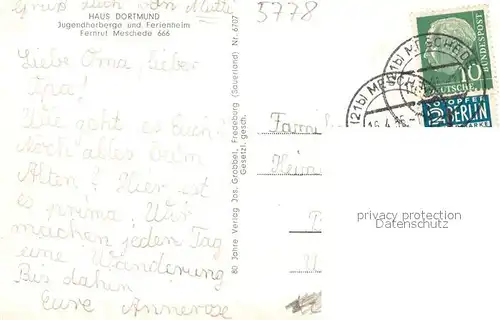 Gruß auch von Mutti
5778
HAUS DORTMUND
Jugendherberge und Ferienheim
Fernruf Meschede 666
Liebe Oma, lieber
Opa!
Wie geht es Euch?
Noch alles beim
Alten? Hier ist
es prima. Wir
machen jeden Tag
eine Wanderung
Bis dahin
Eure Annerose
80 Jahre Verlag Jos. Grobbel, Fredeburg (Sauerland) Nr. 6707
Gesetzl. gesch.
Fam
privacy protection
Datenschutz
(21b) MESCHEDE
(21b) MESCHEDE
10
DEUTSCHE BUNDESPOST
NOTOPFER
2 BERLIN
STEUERMARKE